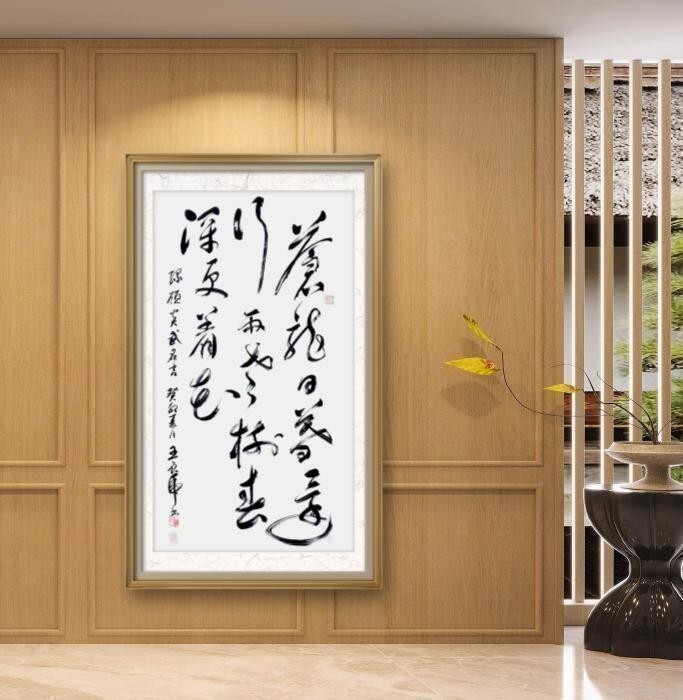 蒼龍日暮還
行雨老樹春
深更着花
錄顧炎武名言 癸卯夏月 王